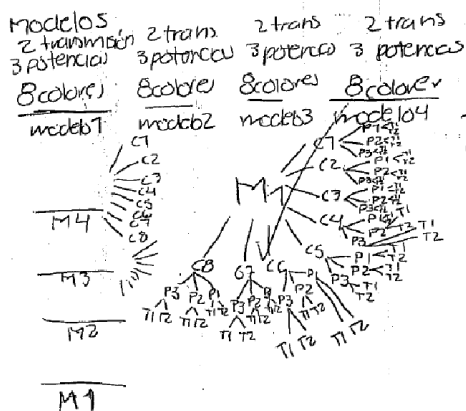 Modelos
2 transmición 2 trans 2 trans 2 trans
3 potencias 3 potencias 3 potencias 3 potencias
8 colores 8 colores 8 colores 8 colores
modelo 1 modelo 2 modelo 3 modelo 4
C1
C2
C3
C4
C5
C6
C7
C8
M4
M3
M2
M1
M1
C1 P1 T1 T2
P2 T1 T2
P3 T1 T2
C2 P1 T1 T2
P2 T1 T2
P3 T1 T2
C3 P1 T1 T2
P2 T1 T2
P3 T1 T2
C4 P1 T1 T2
P2 T1 T2
P3 T1 T2
C5 P1 T1 T2
P2 T1 T2
P3 T1 T2
C8 C7 C6
P3 P2 P1 P3 P2 P1 P3 P2 P1
T1 T2 T1 T2 T1 T2 T1 T2 T1 T2 T1 T2 T1 T2 T1 T2